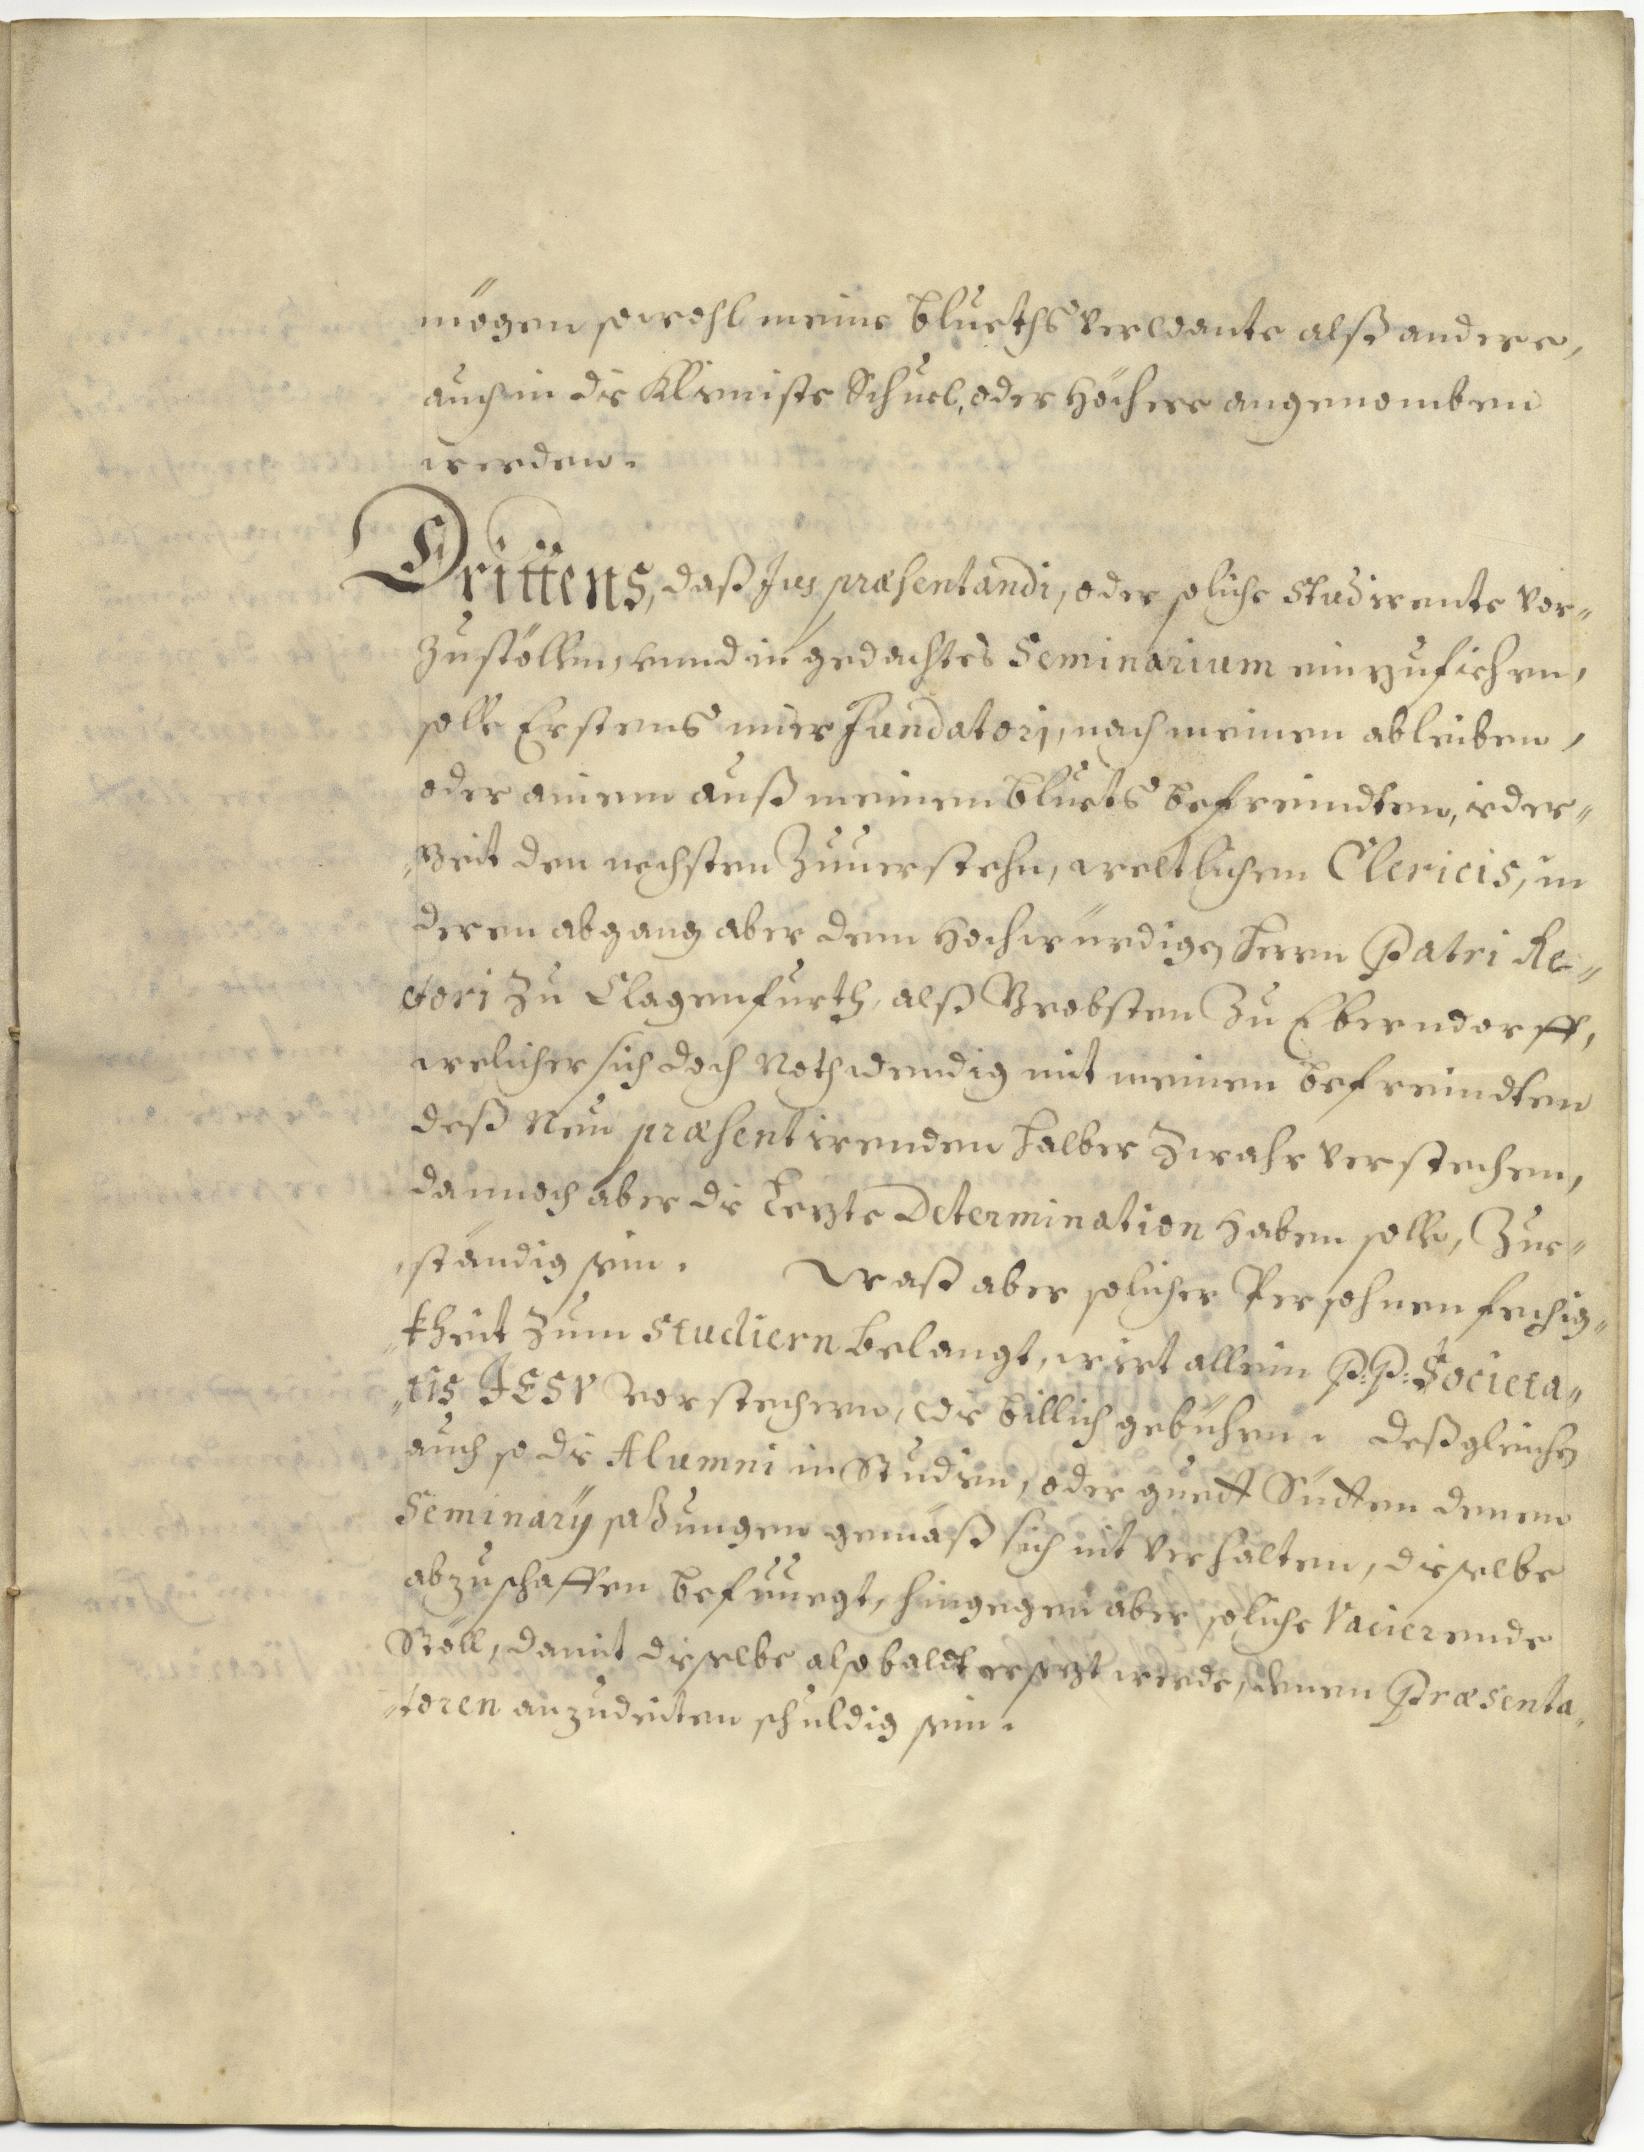 mögen sowohl meine bluethsverwante alß andere,
auch in die Klieniste Schuel, oder höchere angenomben
werden.
Drittens, daß Jus præsentandi, oder soliche Studierente vor-
zustöllen, vnnd in gedachtes Seminarium einzufiehren,
solle Erstens mier Fundatori, nach meinen ableiben,
oder ainem auß meinem bluets befreindten, ieder-
zeit den nechsten zuuerstehn, weltlichem Clericis, in
deren abgang aber dem Hochwürdigen Herrn Patri Re-
ctori zu Clagenfurth, alß Probsten zu Eberndorff,
welicher sich doch Nothwendig mit meinen befreindten
deß Neu præsentierenden halber zwahr verstechen,
dannoch aber die Leczte Determination haben solle, Zue-
ständig sein. Waß aber solicher Persohnen fechig-
kheit zum Studiern belangt, wirt allein P: P: Societa-
tis JESV vorstechern, die billich gebühren. Deßgleichen
auch so die Alumni in Studien, oder guedt Sidten denen
Seminarij saczungen gemäß sich nit verhalten, dieselbe
abzuschaffen befuuegt, hingegen aber soliche Vacierende
Stöll, damit dieselbe alsobaldt erseczt werde, denen Præsenta-
toren anzudeiten schuldig sein.